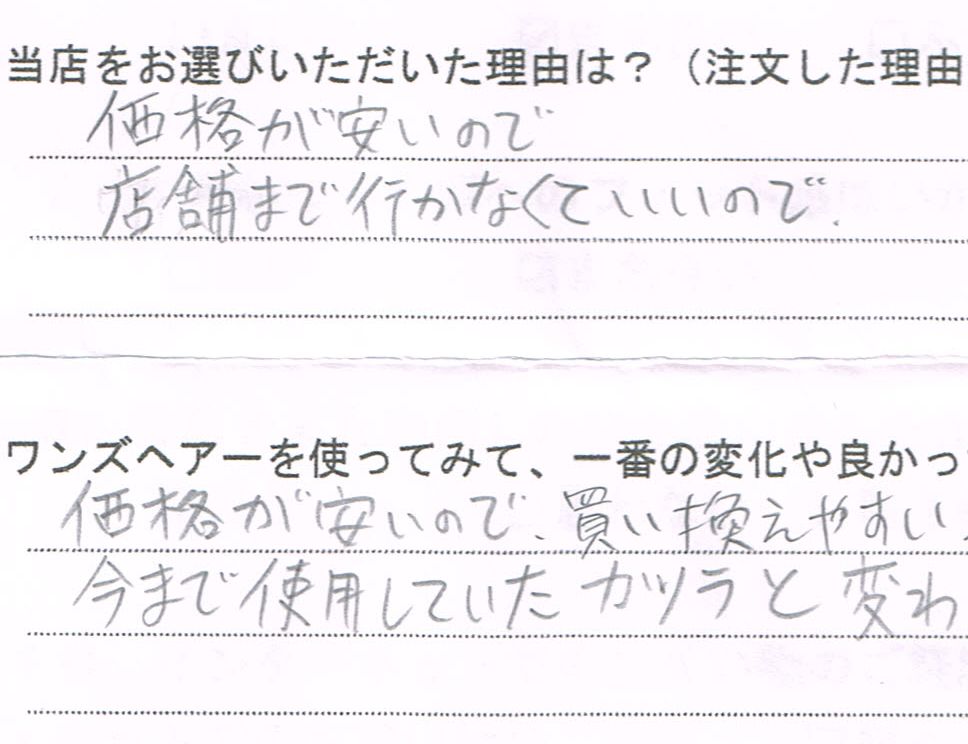 当店をお選びいただいた理由は？（注文した理由
価格が安いので
店舗まで行かなくていいので.
ワンズヘアーを使ってみて、一番の変化や良かっ
価格が安いので、買い換えやすい
今まで使用していたカツラと変わ